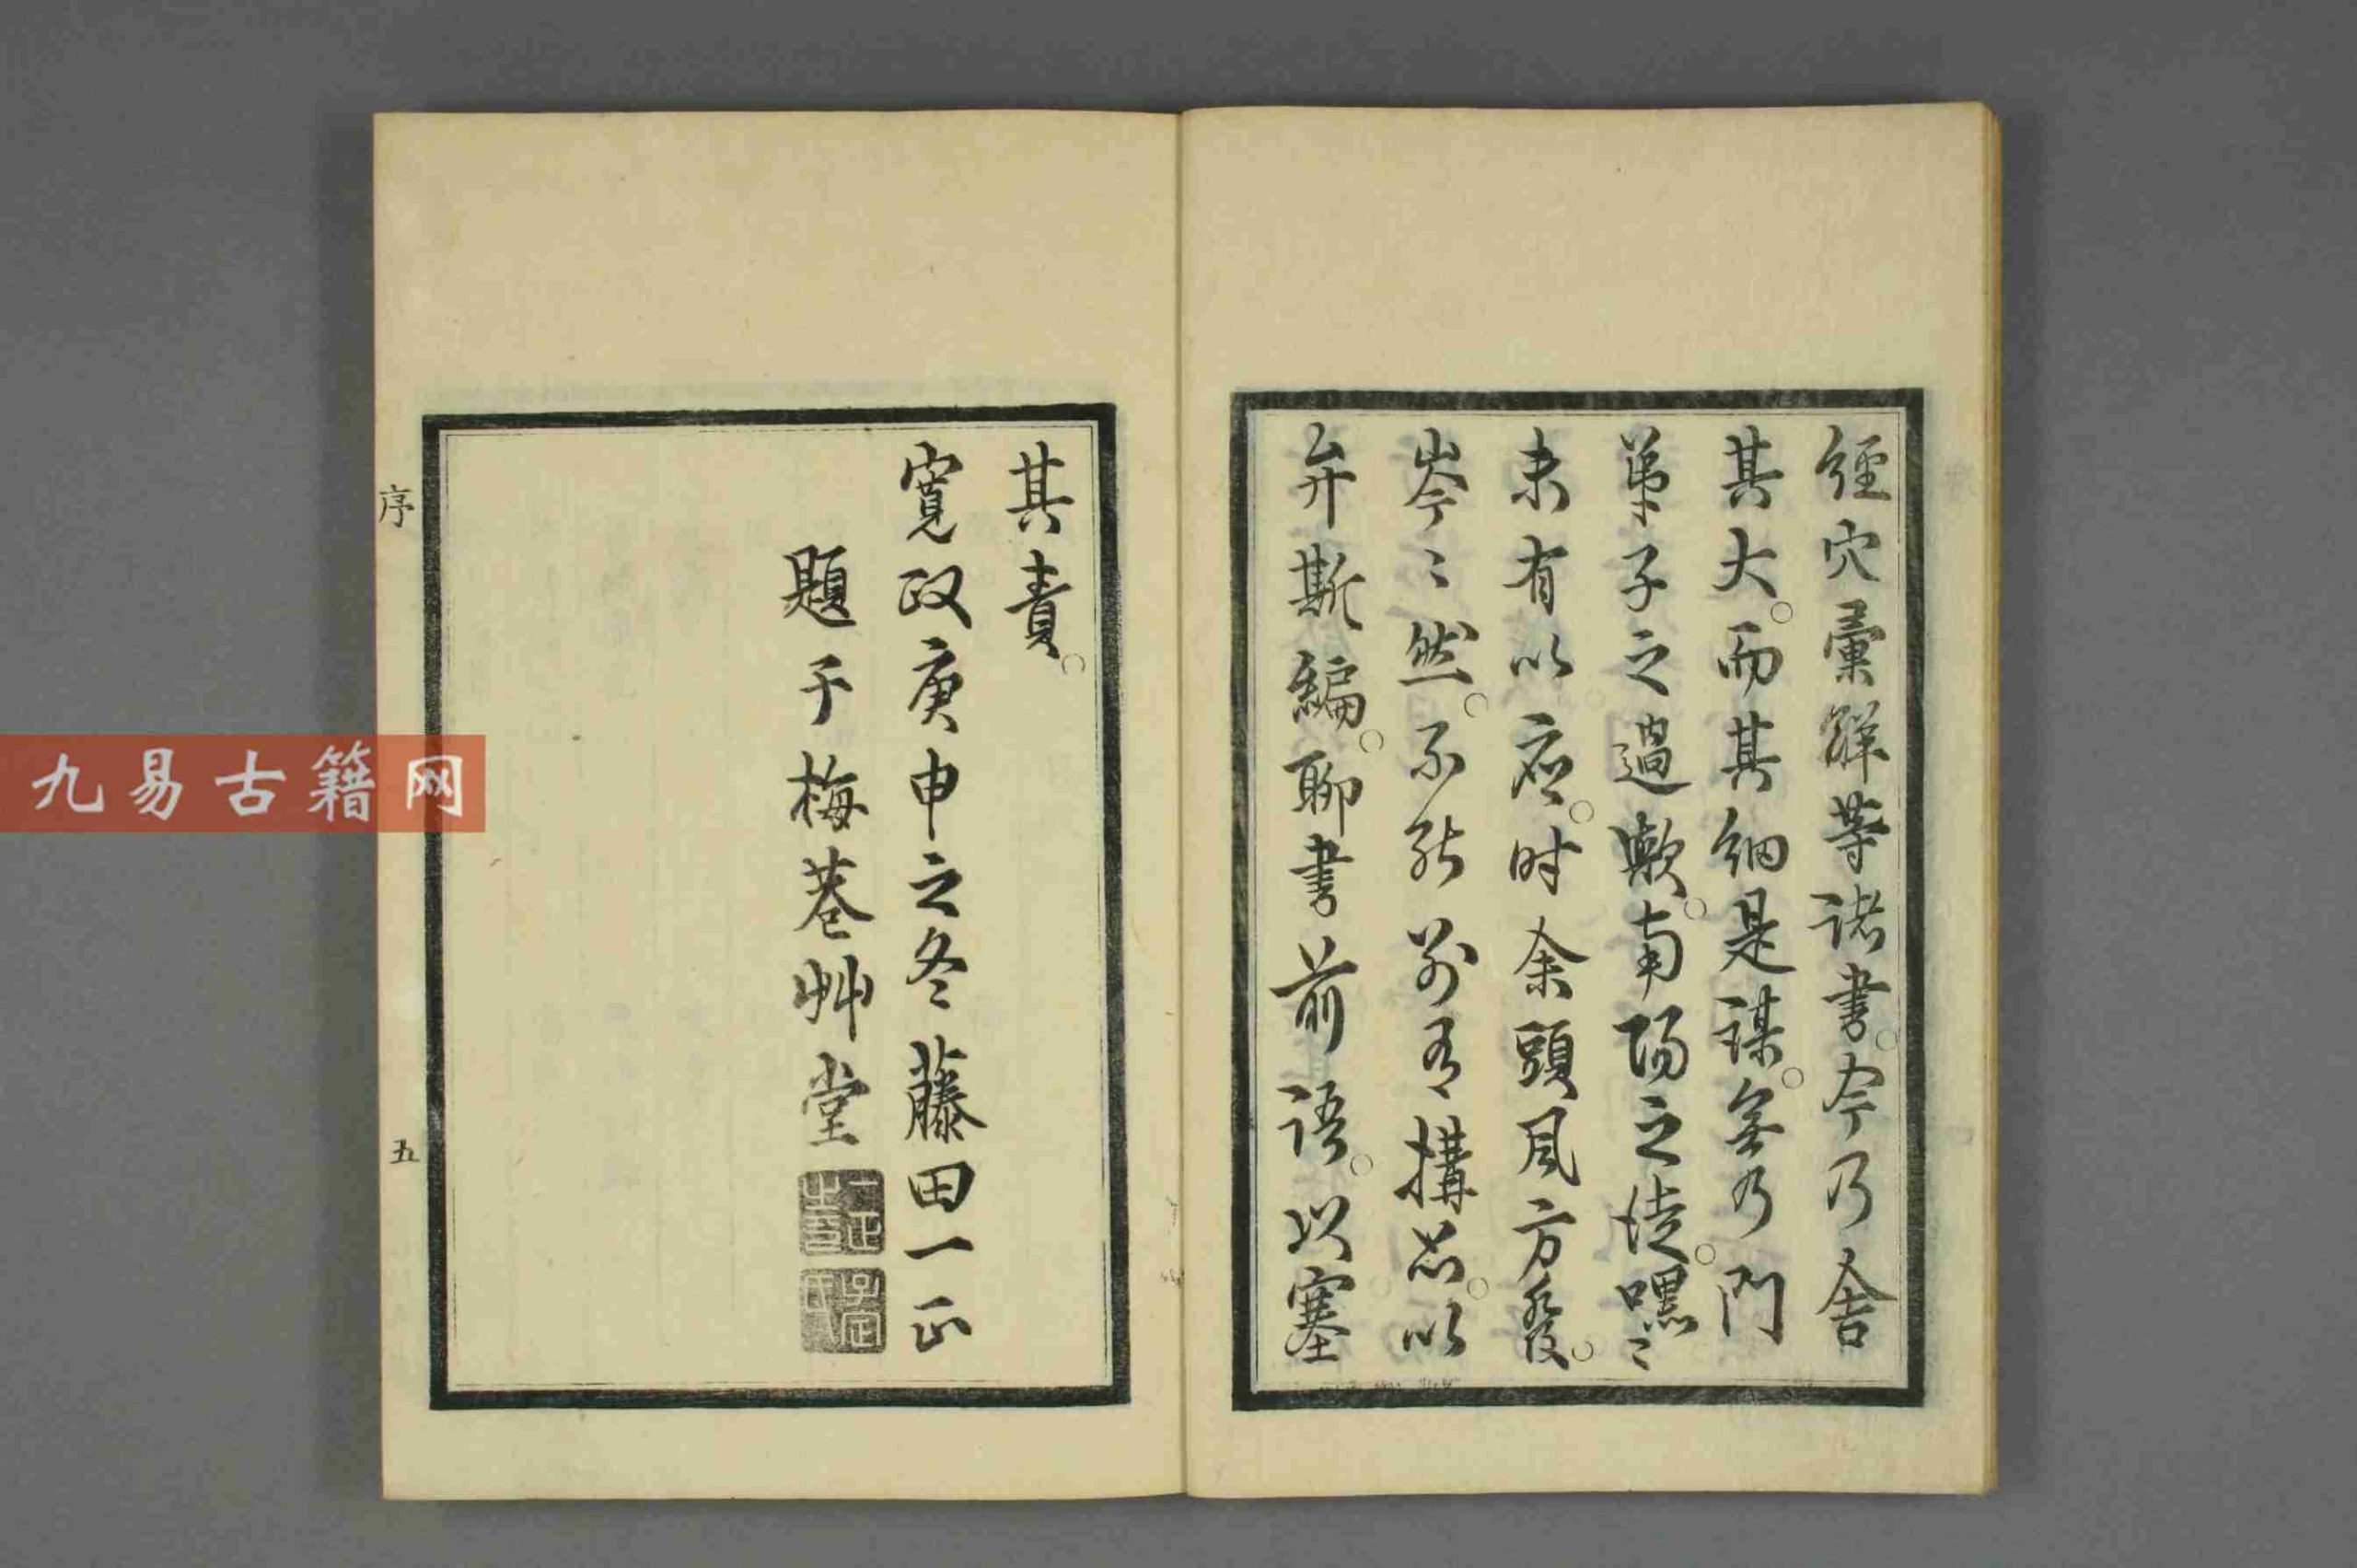 經穴彙解等諸書。今乃舍
其大。而其細是謀。無乃門
弟子之過歟。南陽之徒。嘿〻
未有以應。时余頭風方發。
岑〻然。不能別有構思。以
弁斯編。聊書前語。以塞
其責。
寬政庚申之冬藤田一正
題于梅巷艸堂
一正之印
子定氏
序
五
九易古籍网